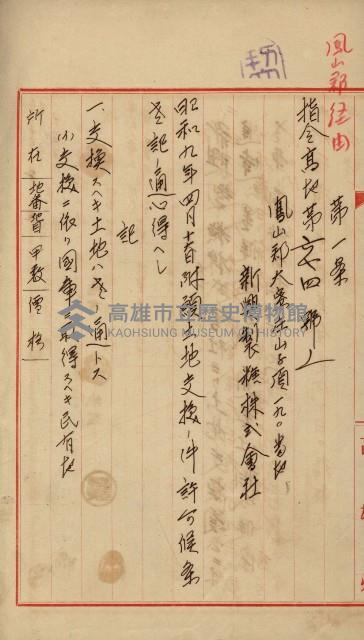 鳳山郡経由
第一案
指令高地第六七四號ノ
鳳山郡大寮庄山子頂一九〇番地
新興製糖株式會社
昭和九年四月十六日附願土地交換ノ件許可候条
左記ノ通心得ヘシ
記
一、交換スヘキ土地ハ左ノ通トス
(イ)交換ニ依リ國庫ニ取得スヘキ民有地
所在 地番 地目 甲数 價格
高雄市立歷史博物館
KAOHSIUNG MUSEUM OF HISTORY